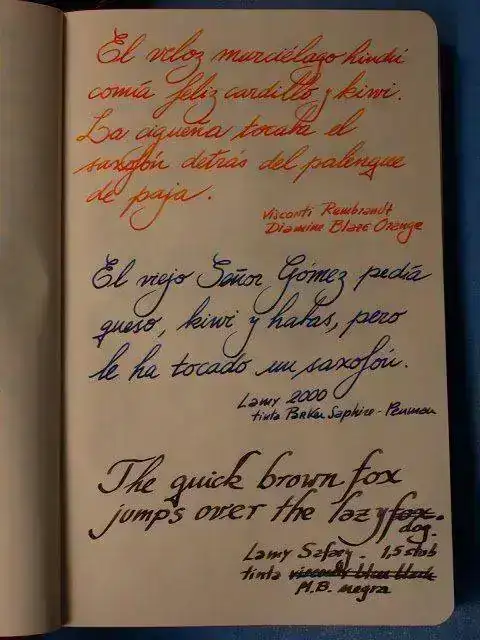 El veloz murciélago hindú
comía feliz cardillo y kiwi.
La cigüeña tocaba el
saxofón detrás del palenque
de paja.
Visconti Rembrandt
Diamine Blaze Orange
El viejo Señor Gómez pedía
queso, kiwi y habas, pero
le ha tocado un saxofón.
Lamy 2000
tinta Parker Saphire - Penman
The quick brown fox
jumps over the lazy fox.
dog.
Lamy Safary. 1,5 stub
tinta visconti blue black
M.B. negra